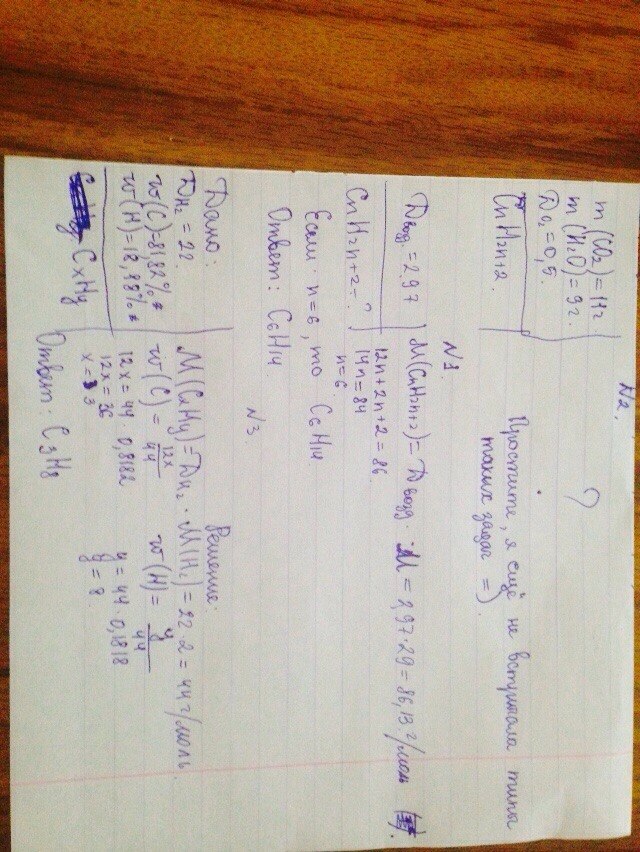 N2.
m (CO2) = 11г
m (H2O) = 9г.
Dо2 = 0,5.
CnH2n+2.
?
Простите, я ещё не встритала типы
таких задач =).
N1.
Dвозд = 2,97
CnH2n+2 - ?
M(CnH2n+2) = Dвозд · M = 2,97·29 = 86,13 г/моль
12n+2n+2 = 86.
14n = 84
n = 6.
Если n=6, то C6H14
Ответ: C6H14
N3
Дано:
DH2 = 22.
w(C) = 81,82%
w(H) = 18,18%
CxHy
Решение:
M(CxHy) = DH2 · M(H2) = 22·2 = 44 г/моль.
w(C) = 12x/44
12x = 44·0,8182
12x = 36
x = 3
w(H) = y/44
y = 44·0,1818
y = 8.
Ответ: C3H8